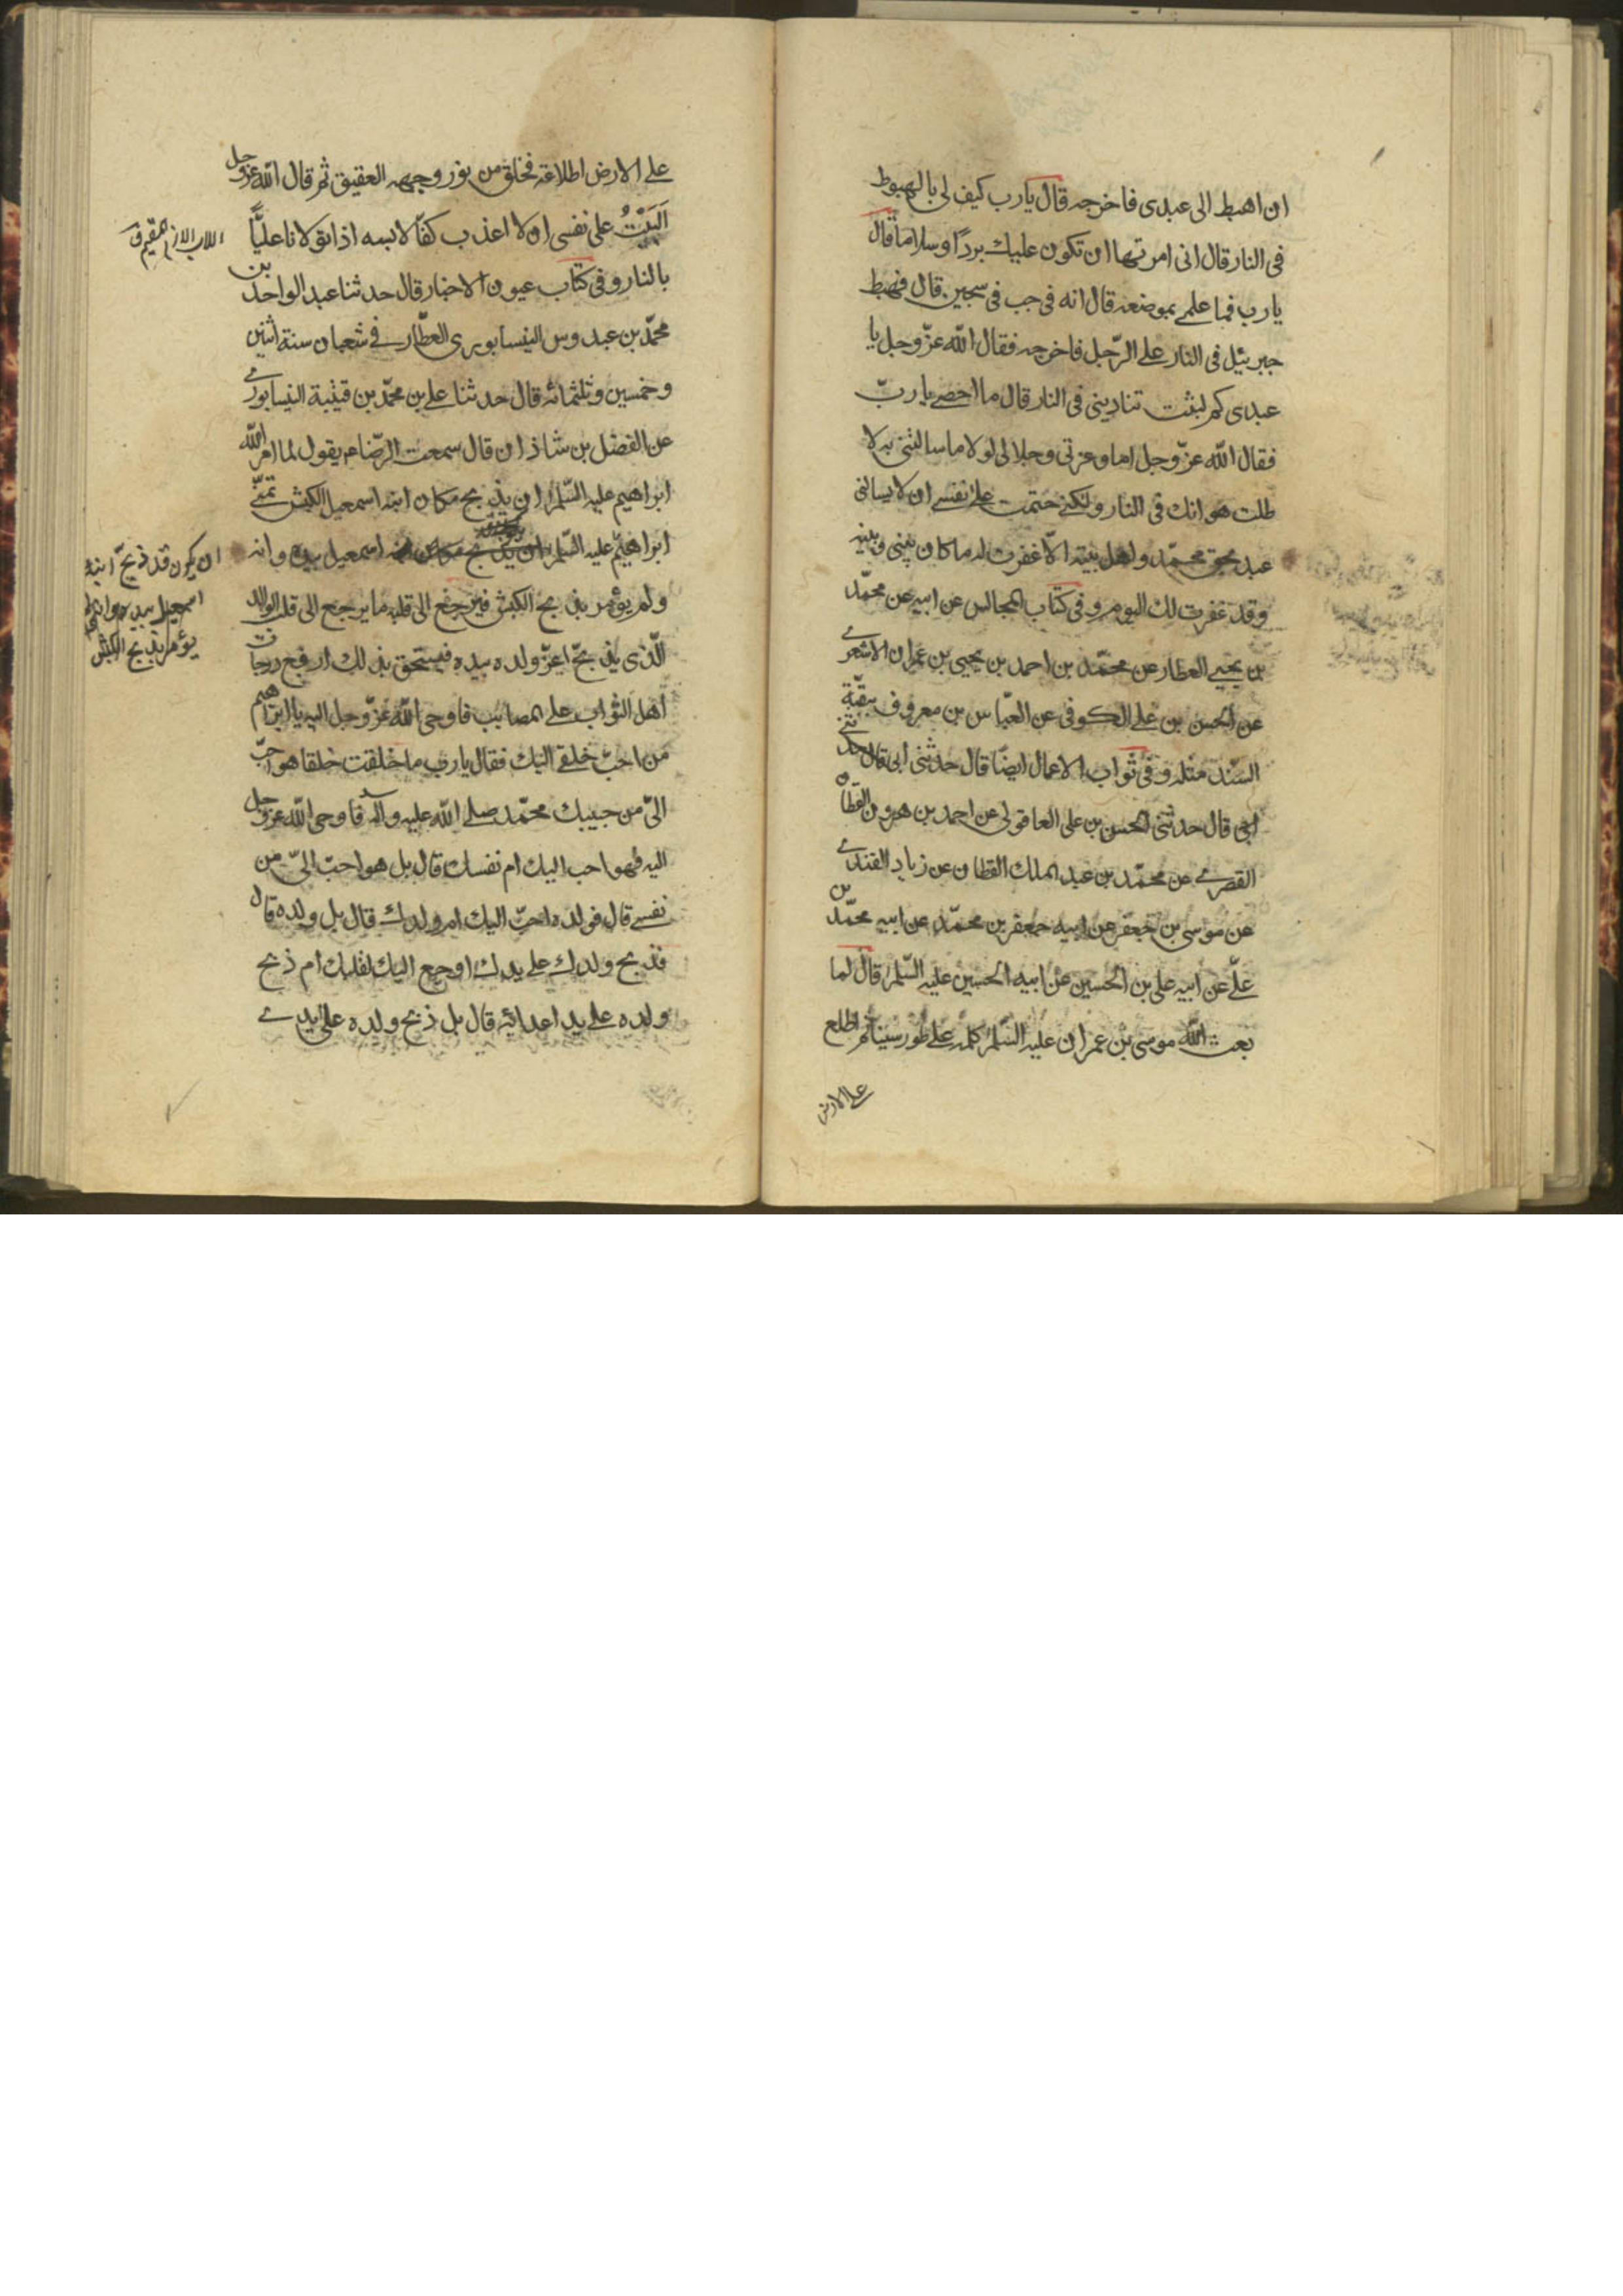 ان اهبط الى عبدى فاخرجه قال يارب كيف لى بالهبوط
فى النار قال انى امرتها ان تكون عليك بردًا وسلاما قال
يا رب فما علمى بموضعه قال انه فى جب فى سجين قال فهبط
جبرئيل فى النار على الرّجل فاخرجه فقال الله عزّ وجل يا
عبدى كم لبثت تنادينى فى النار قال ما احصى يا ربّ
فقال الله عزّ وجل اما وعزتى وجلالى لولا ما سالتنى به لا
طلت هوانك فى النار ولكنى حتمت على نفسى ان لا يسالنى
عبد بحق محمّد واهل بيته الّا غفرت له ما كان بينى وبينه
وقد غفرت لك اليوم وفى كتاب المجالس عن ابيه عن محمّد
بن يحيى العطار عن محمّد بن احمد بن يحيى بن عمران الاشعرى
عن الحسن بن على الكوفى عن العبّاس بن معروف بقيّة
السّند مثله وفى ثواب الاعمال ايضًا قال حدثنى ابى قال حدثنى
ابى قال حدثنى الحسن بن على العاقولى عن احمد بن هرون القطان
القصرى عن محمّد بن عبد الملك القطان عن زياد القندى
عن موسى بن جعفر عن ابيه جعفر بن محمّد عن ابيه محمّد بن
علىّ عن ابيه على بن الحسين عن ابيه الحسين عليه السّلم قال لما
بعث الله موسى بن عمران عليه السّلم كلمه على طور سينا ثم اطلع
على الارض
على الارض اطلاعة فخلق من نور وجهه العقيق ثم قال الله عزوجل
اَلَيْتُ على نفسى ان لا اعذب كفّا لابسه اذا تولا نا عليًّا
بالنار وفى كتاب عيون الاخبار قال حدثنا عبد الواحد بن
محمّد بن عبدوس النيسابورى العطّار فى شعبان سنة اثنين
وخمسين وثلثمائه قال حدثنا على بن محمّد بن قتيبة النيسابورى
عن الفضل بن شاذان قال سمعت الرّضا ع يقول لما امر الله
ابراهيم عليه السّلم ان يذبح مكان ابنه اسمعيل الكبش تمنّى
ابراهيم عليه السّلم ان يذبح مكان ابنه اسمعيل بيده وانه
ولم يؤمر بذبح الكبش فيرجع الى قلبه ما يرجع الى قلب الوالد
الّذى يذبح اعزّ ولده بيده فيستحق بذلك ارفع درجات
اهل الثواب على المصائب فاوحى الله عزّ وجل اليه يا ابراهيم
من احبّ خلقى اليك فقال يا رب ما خلقت خلقا هو احبّ
الىّ من حبيبك محمّد صلى الله عليه واله فاوحى الله عزوجل
اليه فهو احب اليك ام نفسك قال بل هو احبّ الىّ من
نفسى قال فولده احبّ اليك ام ولدك قال بل ولده قال
فذبح ولدك على يدك اوجع اليك لقلبك ام ذبح
ولده على يد اعدائه قال بل ذبح ولده على ايدى
ان يكون قد ذبح ابنه
اسمعيل بيده وانه لم
يؤمر بذبح الكبش